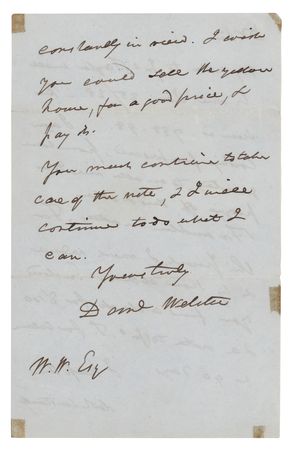 constantly in view. I wish
you could sell the yellow
house, for a good price, &
pay
You must continue to take
care of the note, & I will
continue to do what I
can.
Yours truly
Danl Webster
W. W. Esq